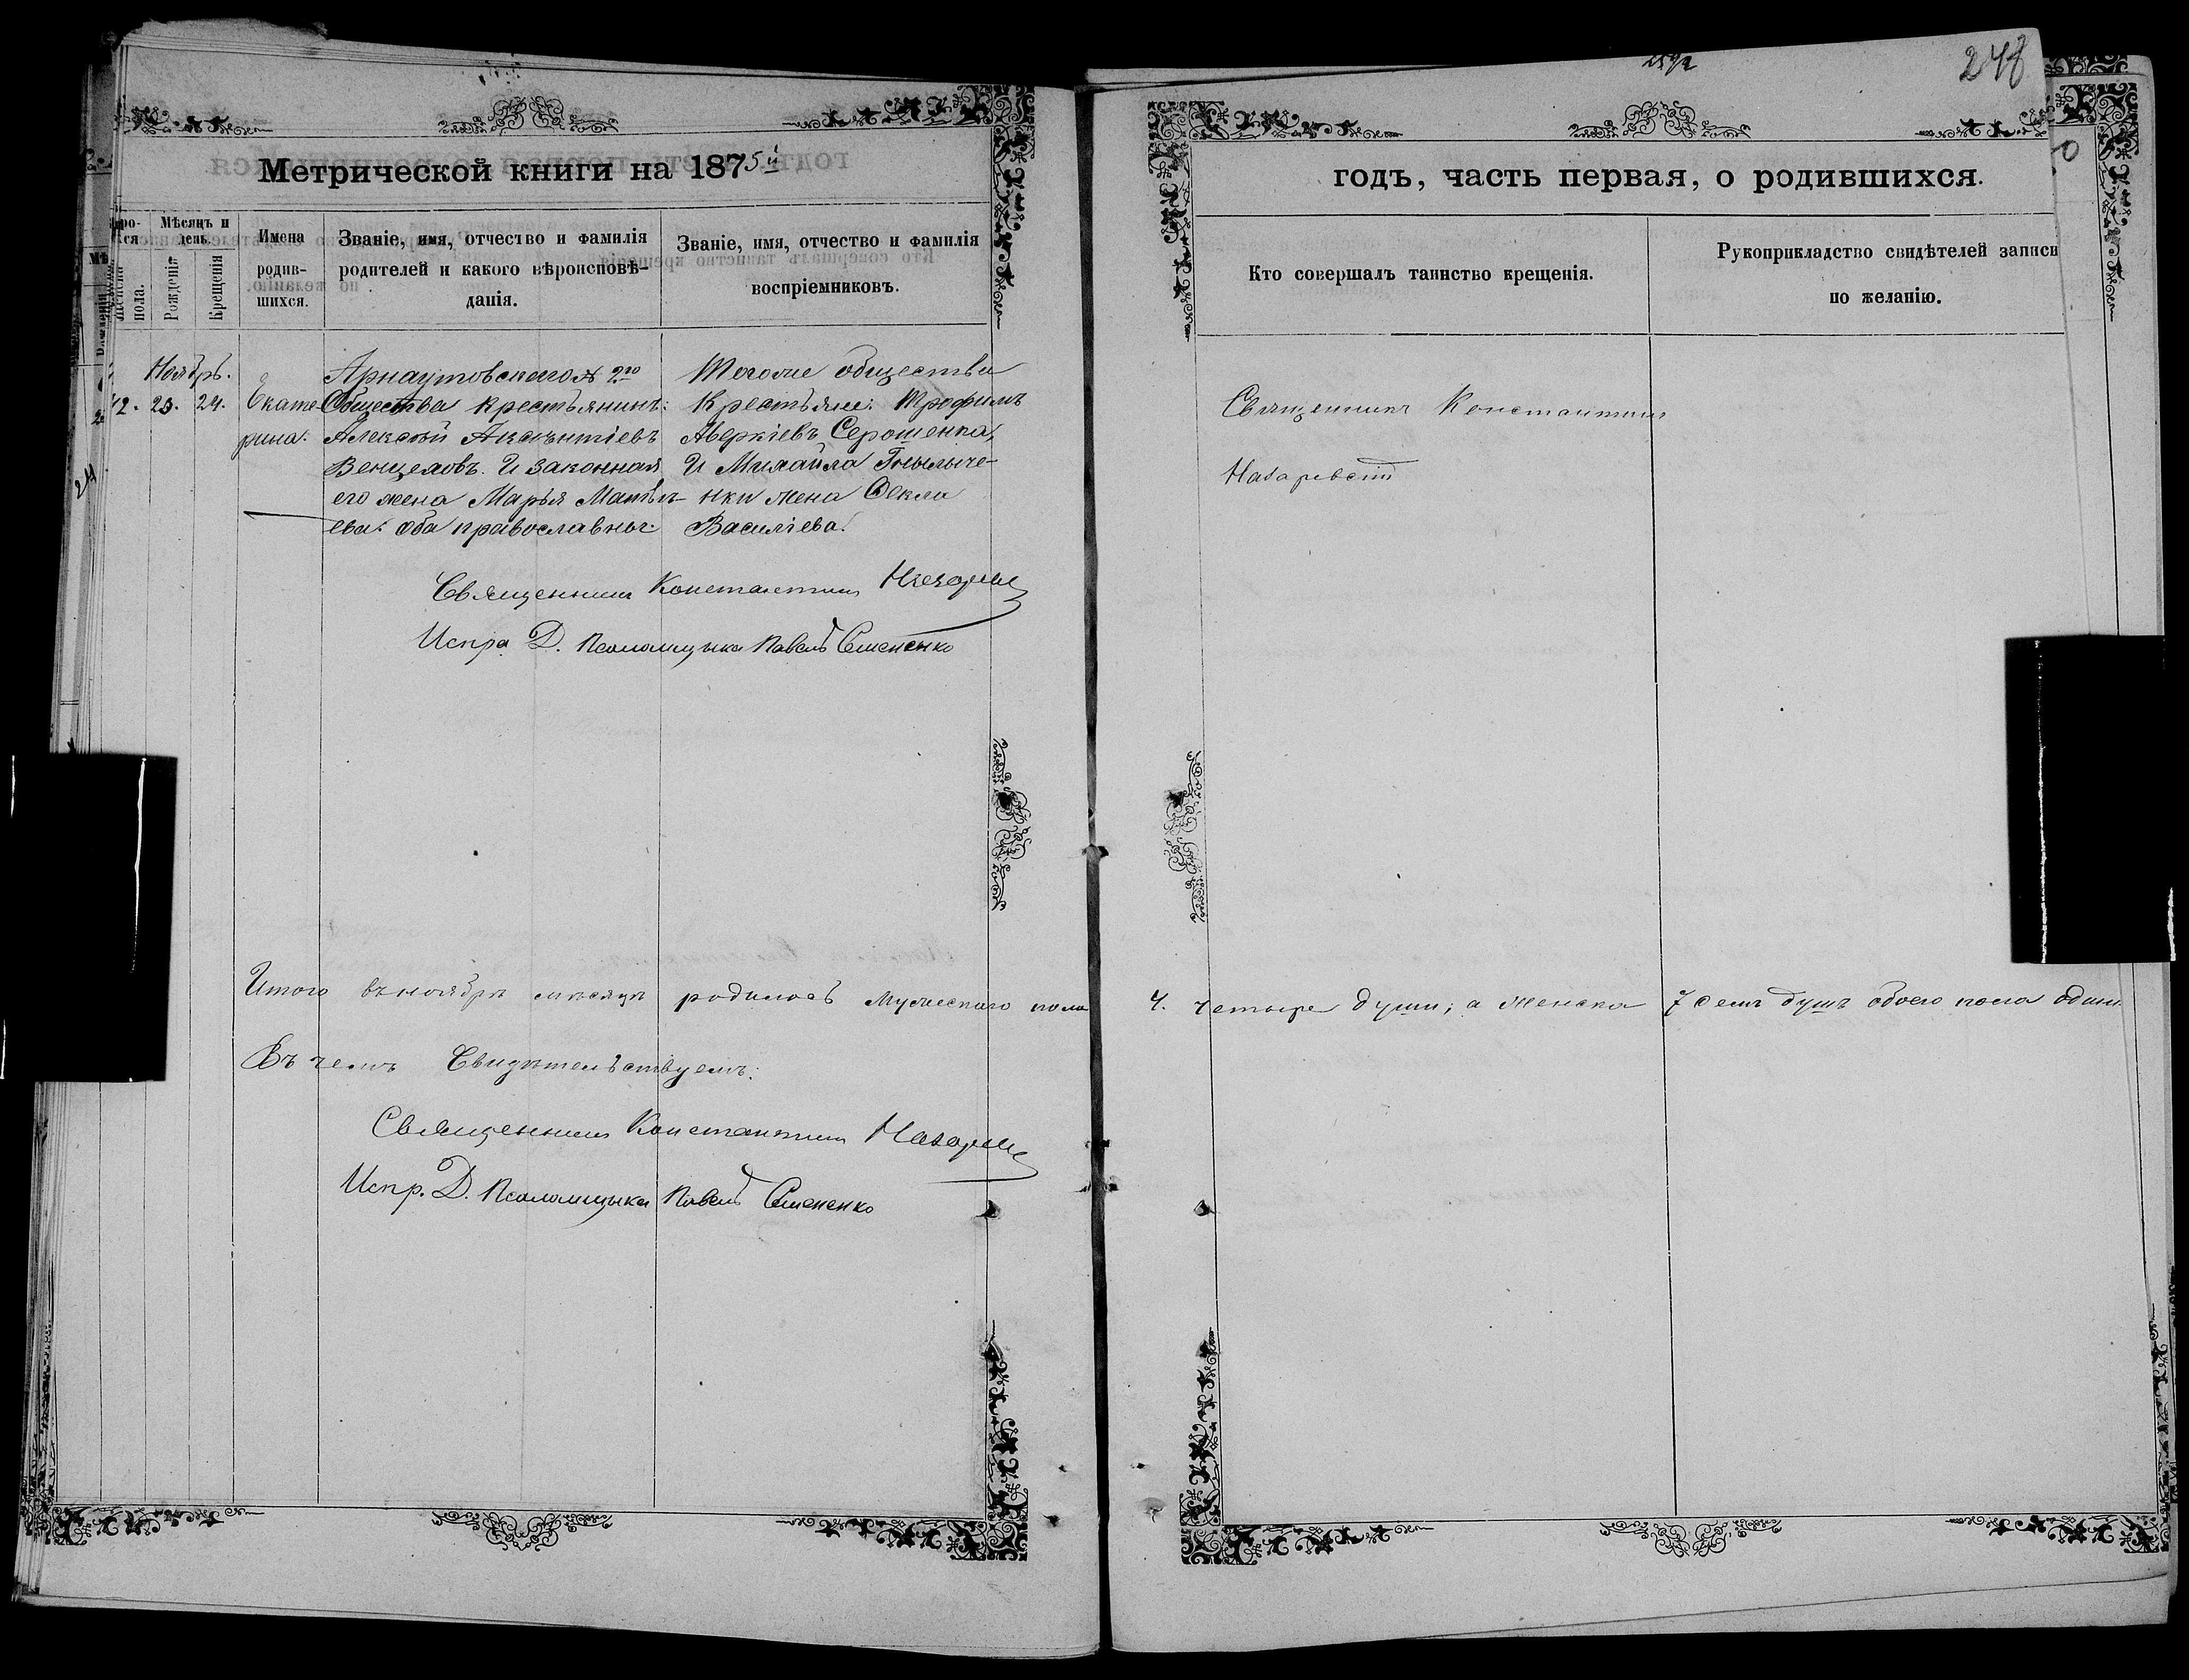 248
Метрической книги на 1875й
годъ, часть первая, о родившихся.
Мѣсяцъ и день.
Рожденія
Крещенія
Имена родив-
шихся.
Званіе, имя, отчество и фамилія
родителей и какого вѣроисповѣ-
данія.
Званіе, имя, отчество и фамилія
воспріемниковъ.
Кто совершалъ таинство крещенія.
Рукоприкладство свидѣтелей записи
по желанію.
пола.
Ноябрь.
42. 23. 24.
Екате-
рина.
Арнаутовскаго № 2го
Общества крестьянинъ:
Алексѣй Авксентіевъ
Венцеловъ. И законная
его жена Марья Матвѣ-
ева: оба православные.
Тогоже общества
Крестьяне: Трофимъ
Аверкіевъ Серошенка,
И Михайла
жена Өекла
Василіева.
Священникъ Константинъ
Назаревскій
Священникъ Константинъ
Испр. Д. Псаломщика Павелъ Семененко
Итого въ ноябрѣ мѣсяцѣ родилось Мужескаго пола
4. четыре души; а женска 7 семь душъ обоего пола один
Въ чемъ Свидѣтельствуемъ:
Священникъ Константинъ
Испр. Д. Псаломщика Павелъ Семененко